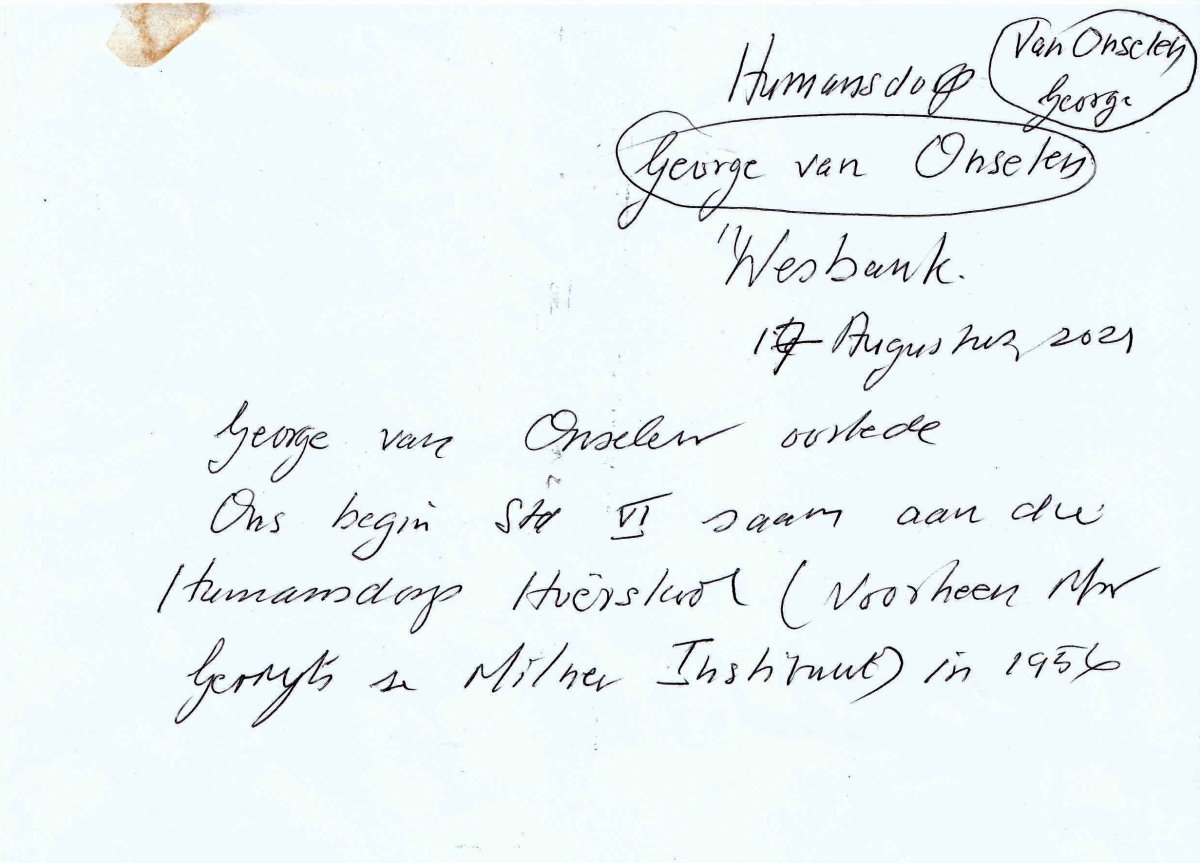 Van Onselen
George
Humansdorp
George van Onselen
"Wesbank.
17 Augustus 2021
George van Onselen oorlede
Ons begin Std VI saam aan die
Humansdorp Hoërskool (Voorheen Mnr
Gerryts se Milner Instituut) in 1956